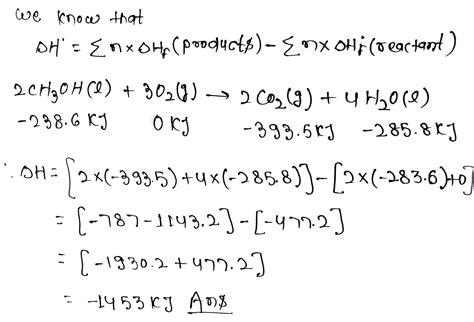 we know that
ΔH° = Σn×ΔHf(products) - Σn×ΔHf°(reactant)
2CH3OH(l) + 3O2(g) → 2CO2(g) + 4H2O(l)
-238.6 KJ 0 KJ -393.5KJ -285.8KJ
∴ ΔH = [2×(-393.5)+4×(-285.8)]-[2×(-283.6)+0]
= [-787-1143.2]-[-477.2]
= [-1930.2+477.2]
= -1453 KJ Ans